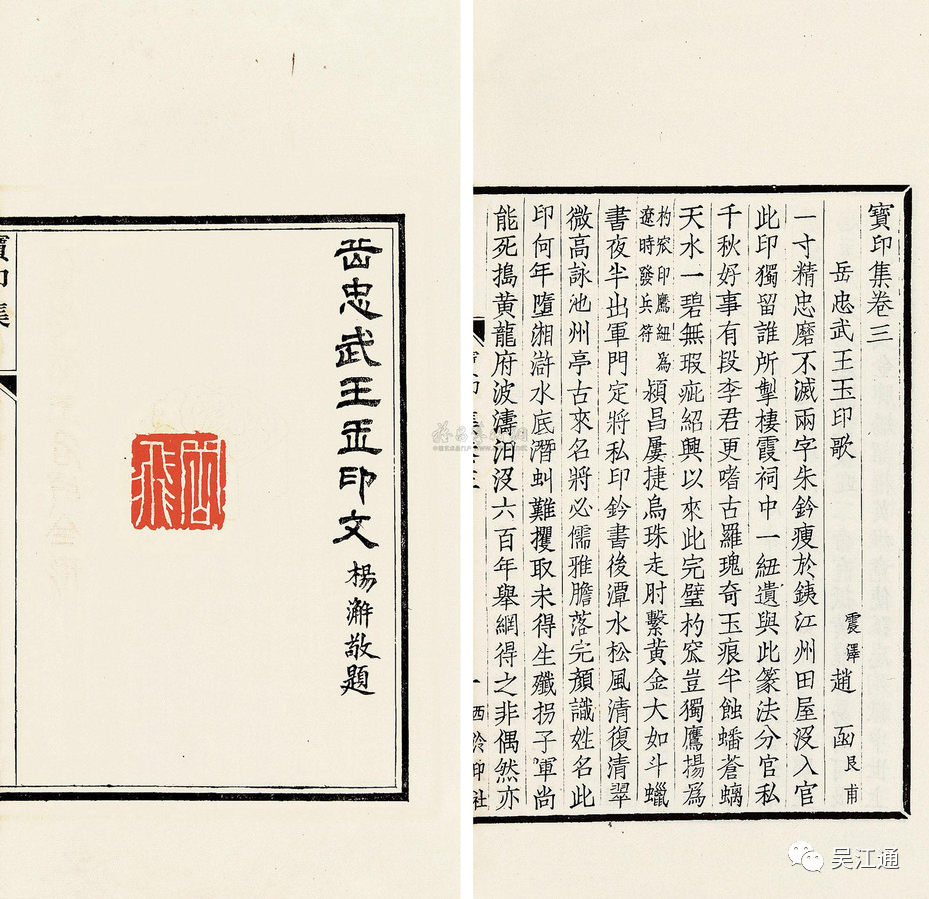 寶印集卷三
岳忠武王玉印歌 震澤 趙 函 艮甫
一寸精忠磨不滅兩字朱鈐瘦於銕江州田屋沒入官
此印獨留誰所掣棲霞祠中一紐遺與此篆法分官私
千秋好事有段李君更嗜古羅瑰奇玉痕半蝕蟠蒼螭
天水一碧無瑕疵紹興以來此完璧杓窊豈獨鷹揚爲
杓窊印鷹紐爲遼時發兵符潁昌屢捷烏珠走肘繫黃金大如斗蠟
書夜半出軍門定將私印鈐書後潭水松風清復清翠
微高詠池州亭古來名將必儒雅膽落完顏識姓名此
印何年墮湘滸水底潛虯難攫取未得生殲拐子軍尚
能死搗黃龍府波濤汨沒六百年舉網得之非偶然亦
寶印集卷三 一 西泠印社
岳忠武王玉印文 楊澥敬題
岳飛
寶印集
吴江通